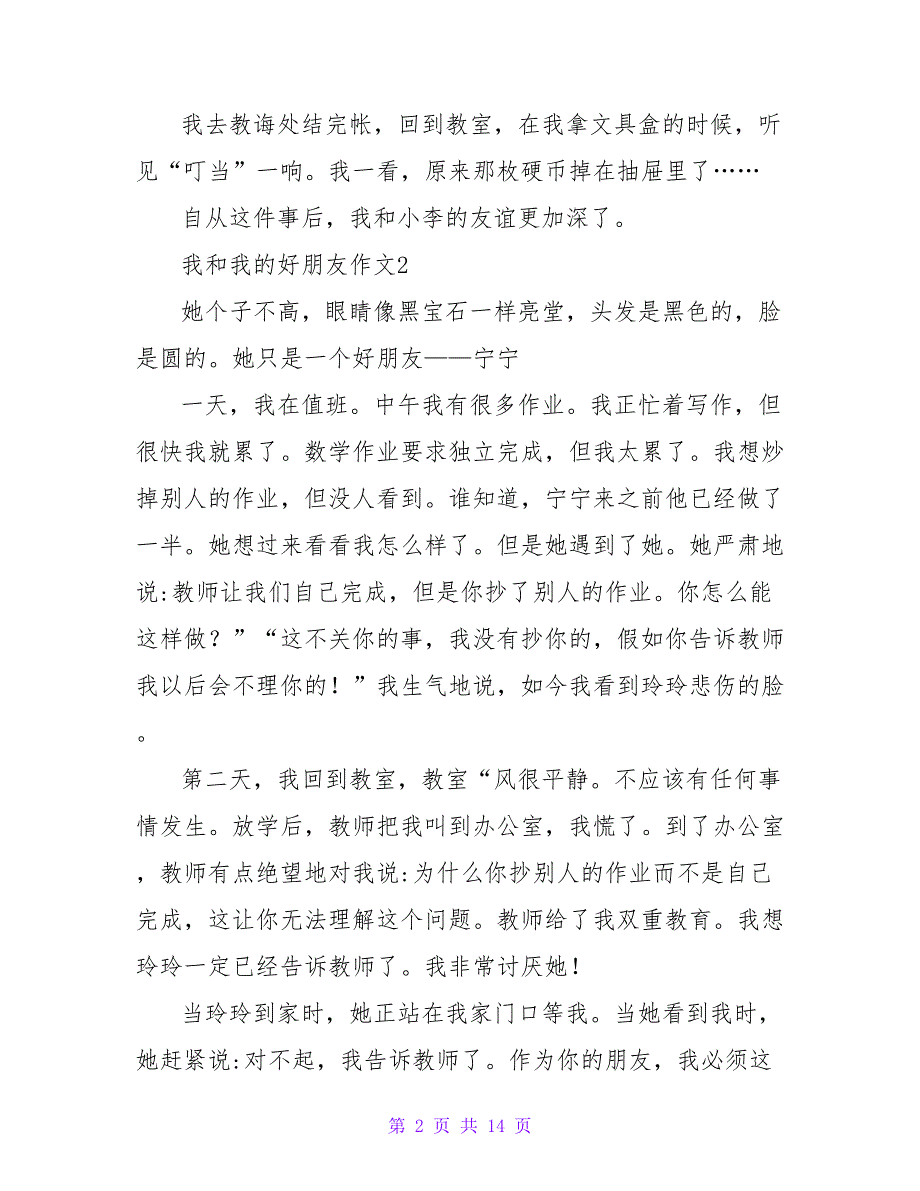 我去教诲处结完帐，回到教室，在我拿文具盒的时候，听
见“叮当”一响。我一看，原来那枚硬币掉在抽屉里了……
自从这件事后，我和小李的友谊更加深了。
我和我的好朋友作文2
她个子不高，眼睛像黑宝石一样亮堂，头发是黑色的，脸
是圆的。她只是一个好朋友——宁宁
一天，我在值班。中午我有很多作业。我正忙着写作，但
很快我就累了。数学作业要求独立完成，但我太累了。我想炒
掉别人的作业，但没人看到。谁知道，宁宁来之前他已经做了
一半。她想过来看看我怎么样了。但是她遇到了她。她严肃地
说:教师让我们自己完成，但是你抄了别人的作业。你怎么能
这样做？”“这不关你的事，我没有抄你的，假如你告诉教师
我以后会不理你的！”我生气地说，如今我看到玲玲悲伤的脸
。
第二天，我回到教室，教室“风很平静。不应该有任何事
情发生。放学后，教师把我叫到办公室，我慌了。到了办公室
，教师有点绝望地对我说:为什么你抄别人的作业而不是自己
完成，这让你无法理解这个问题。教师给了我双重教育。我想
玲玲一定已经告诉教师了。我非常讨厌她！
当玲玲到家时，她正站在我家门口等我。当她看到我时，
她赶紧说:对不起，我告诉教师了。作为你的朋友，我必须这
第 2 页 共 14 页